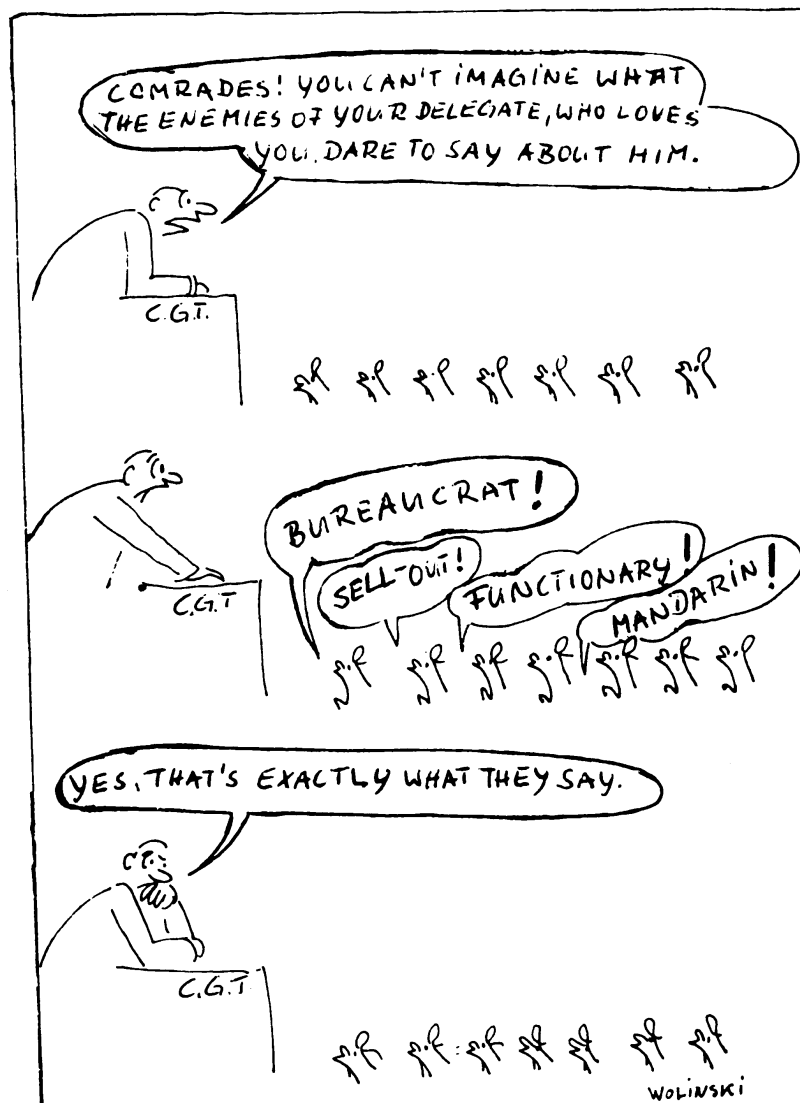 COMRADES! YOU CAN'T iMAGINE WHAT
THE ENEMIES OF YOUR DELEGATE, WHO LOVES
YOU, DARE TO SAY ABOUT HIM.
C.G.T.
BUREAUCRAT!
SELL-OUT!
FUNCTIONARY!
MANDARiN!
C.G.T
YES, THAT'S EXACTLY WHAT THEY SAY.
C.G.T
WOLiNSKi